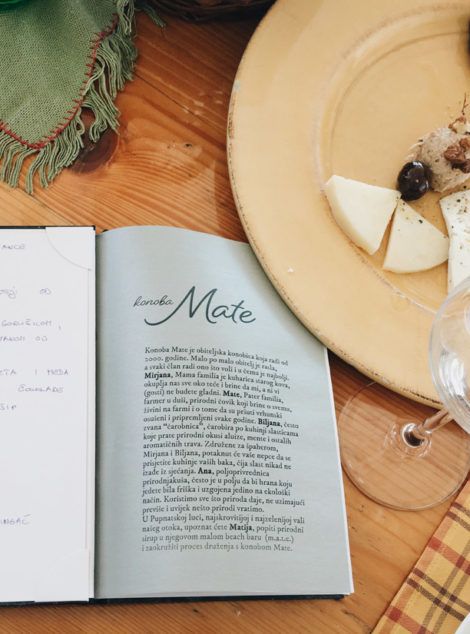 konoba Mate
Konoba Mate je obiteljska konobica koja radi od
2000. godine. Malo po malo obitelj je rasla,
a svaki član radi ono što voli i u čemu je najbolji.
Mirjana, Mama familia je kuharica starog kova,
okuplja nas sve oko teće i brine da mi, a ni vi
(gosti) ne budete gladni. Mate, Pater familia,
farmer u duši, prirodni čovik koji brine o svemu,
živini na farmi i o tome da su pršuti vrhunski
osušeni i pripremljeni svake godine. Biljana, često
zvana "čarobnica", čarobira po kuhinji slasticama
koje prate prirodni okusi aluize, mente i ostalih
aromatičnih trava. Združene za špaherom,
Mirjana i Biljana, potaknut će vaše nepce da se
prisjetite kuhinje vaših baka, čija slast nikad ne
izađe iz sjećanja. Ana, poljoprivrednica
prirodnjakuša, često je u polju da bi hrana koju
jedete bila friška i uzgojena jedino na ekološki
način. Koristimo sve što priroda daje, ne uzimajući
previše i uvijek nešto prirodi vratimo.
U Pupnatskoj luci, najskrovitijoj i najzelenijoj vali
našeg otoka, upoznat ćete Matija, popiti prirodni
sirup u njegovom malom beach baru (m.a.l.e.)
i zaokružiti proces druženja s konobom Mate.
OD
GORUŠICOM,
OD
I MEDA
ČOKOLADE